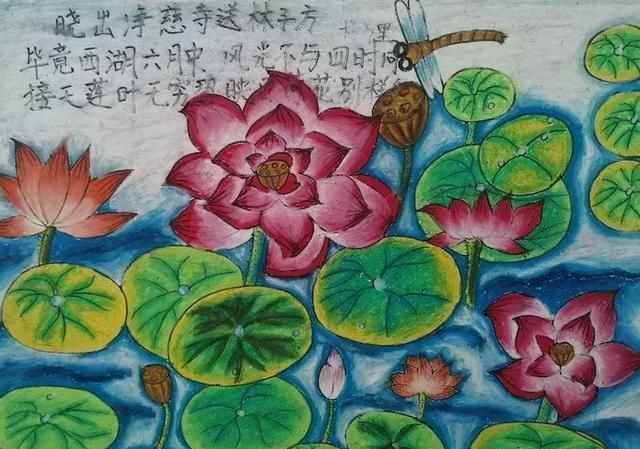 晓出净慈寺送林子方 里
毕竟西湖六月中 风光不与四时同
接天莲叶无穷碧 映 花别样